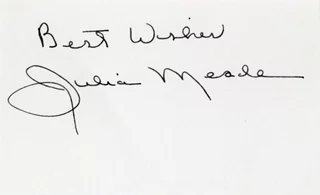 Best Wishes
Julia Meade